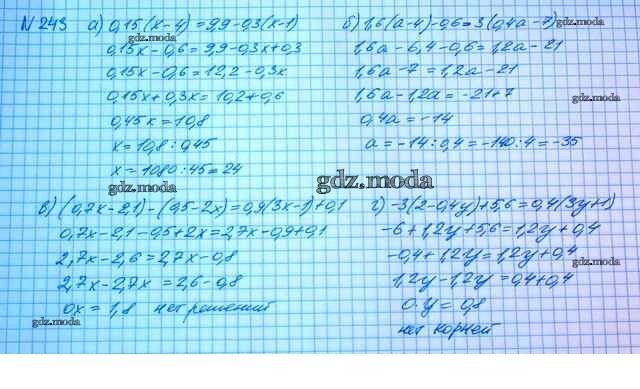 N 243 а) 0,15(x-4)=9,9-0,3(x-1)
0,15x-0,6=9,9-0,3x+0,3
0,15x-0,6=12,2-0,3x
0,15x+0,3x=10,2+0,6
0,45x=10,8
x=10,8:0,45
x=1080:45=24
б) 1,6(a-4)-0,6=3(0,4a-7)
1,6a-6,4-0,6=1,2a-21
1,6a-7=1,2a-21
1,6a-1,2a=-21+7
0,4a=-14
a=-14:0,4=-140:4=-35
в) (0,7x-2,1)-(0,5-2x)=0,9(3x-1)+0,1
0,7x-2,1-0,5+2x=2,7x-0,9+0,1
2,7x-2,6=2,7x-0,8
2,7x-2,7x=2,6-0,8
0x=1,8 нет решений
г) -3(2-0,4y)+5,6=0,4(3y+1)
-6+1,2y+5,6=1,2y+0,4
-0,4+1,2y=1,2y+0,4
1,2y-1,2y=0,4+0,4
0·y=0,8
нет корней
gdz.moda
gdz.moda
gdz.moda
gdz.moda
gdz.moda
gdz.moda
gdz.moda
gdz.moda
gdz.moda